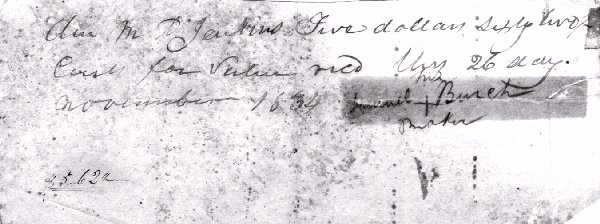 Wm P Jenkins Five dollars Sixty two &
Cents for Value recd this 26 day.
November 1834 Samuel his X Burch
marke
$5.62½